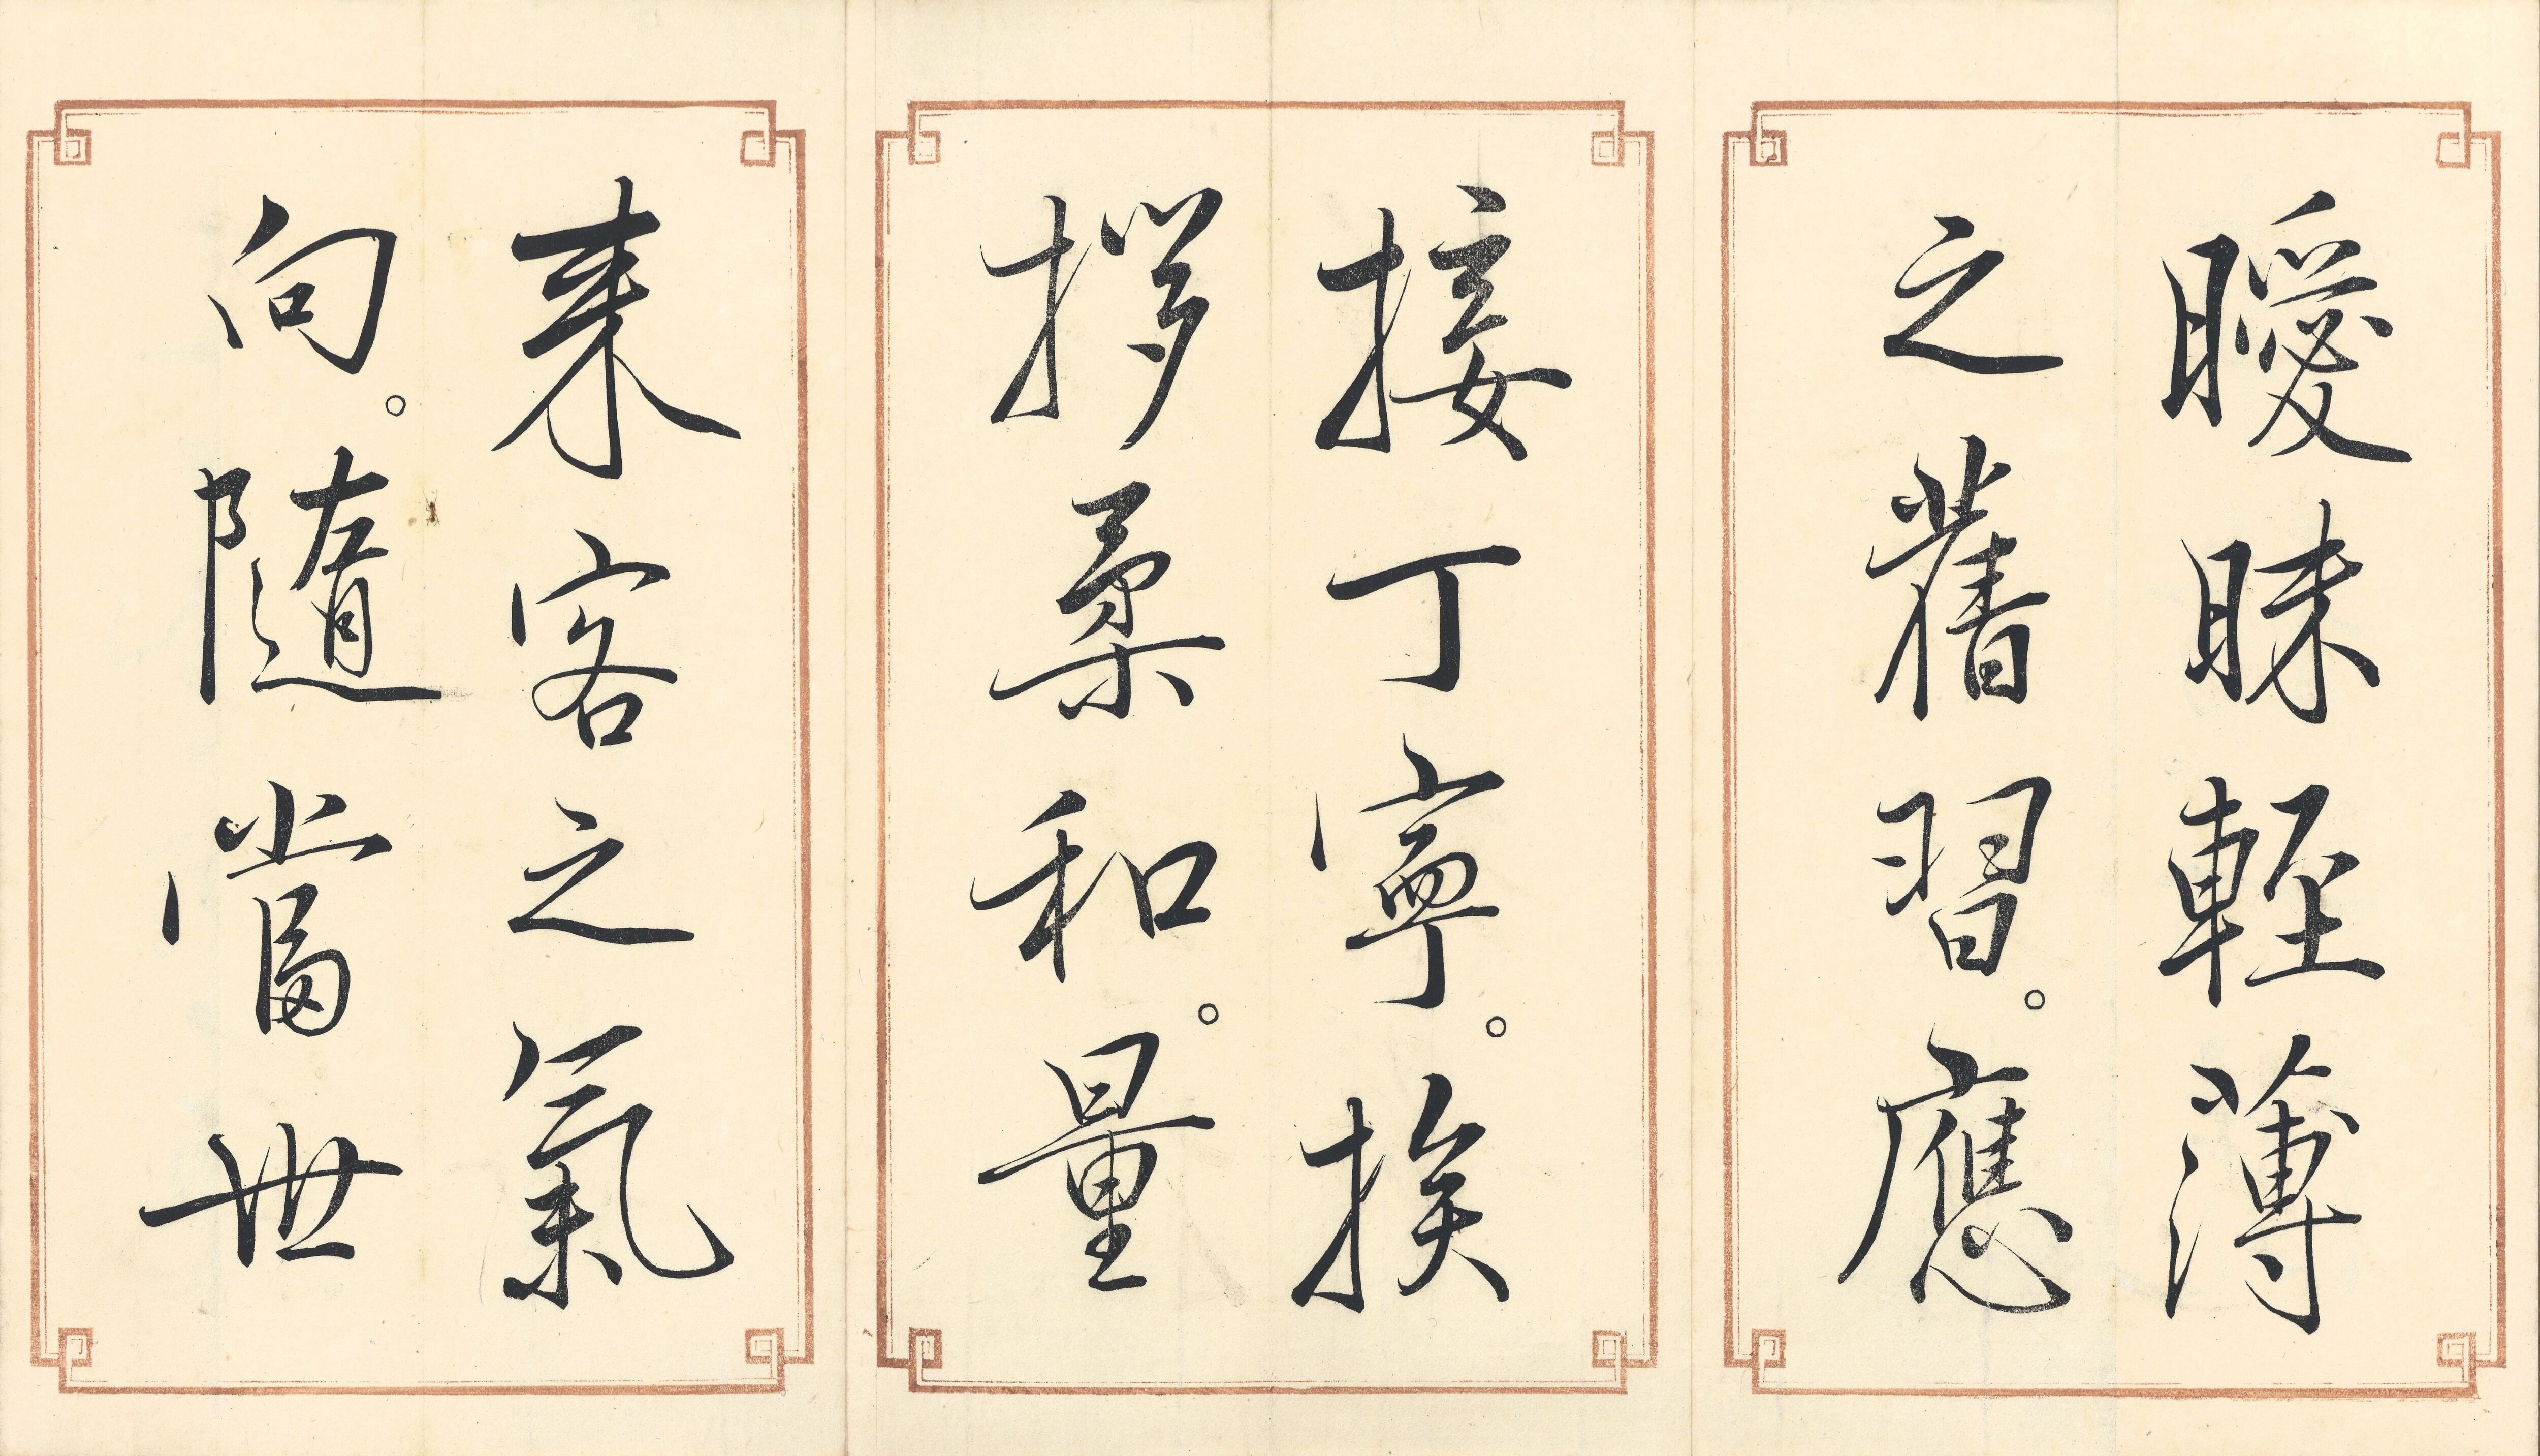 曖昧輕薄
之舊習。應
接丁寧。挨
拶柔和。量
来客之氣
向。随當世